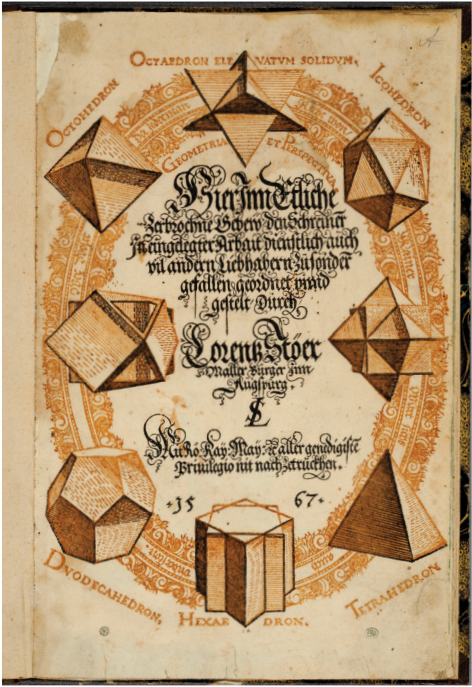 OCTAEDRON ELEVATVM SOLIDVM.
OCTOHEDRON
ICOHEDRON
GEOMETRIA ET PERSPECTIVA
Hier Inn Etliche
Zerbrochne Gebew den Schreiner
In eingelegter Arbait dienstlich auch
vil andern Liebhabern Zu sonder
gefallen geordnet vnnd
gestelt Durch
Lorentz Stöer
Maller Burger Inn
Augspurg.
LS
Mit Rö: Kay: May: aller genedigiste
Priuilegio nit nach Zetruckhen.
15 67
DVODECAHEDRON,
HEXAEDRON.
TETRAHEDRON